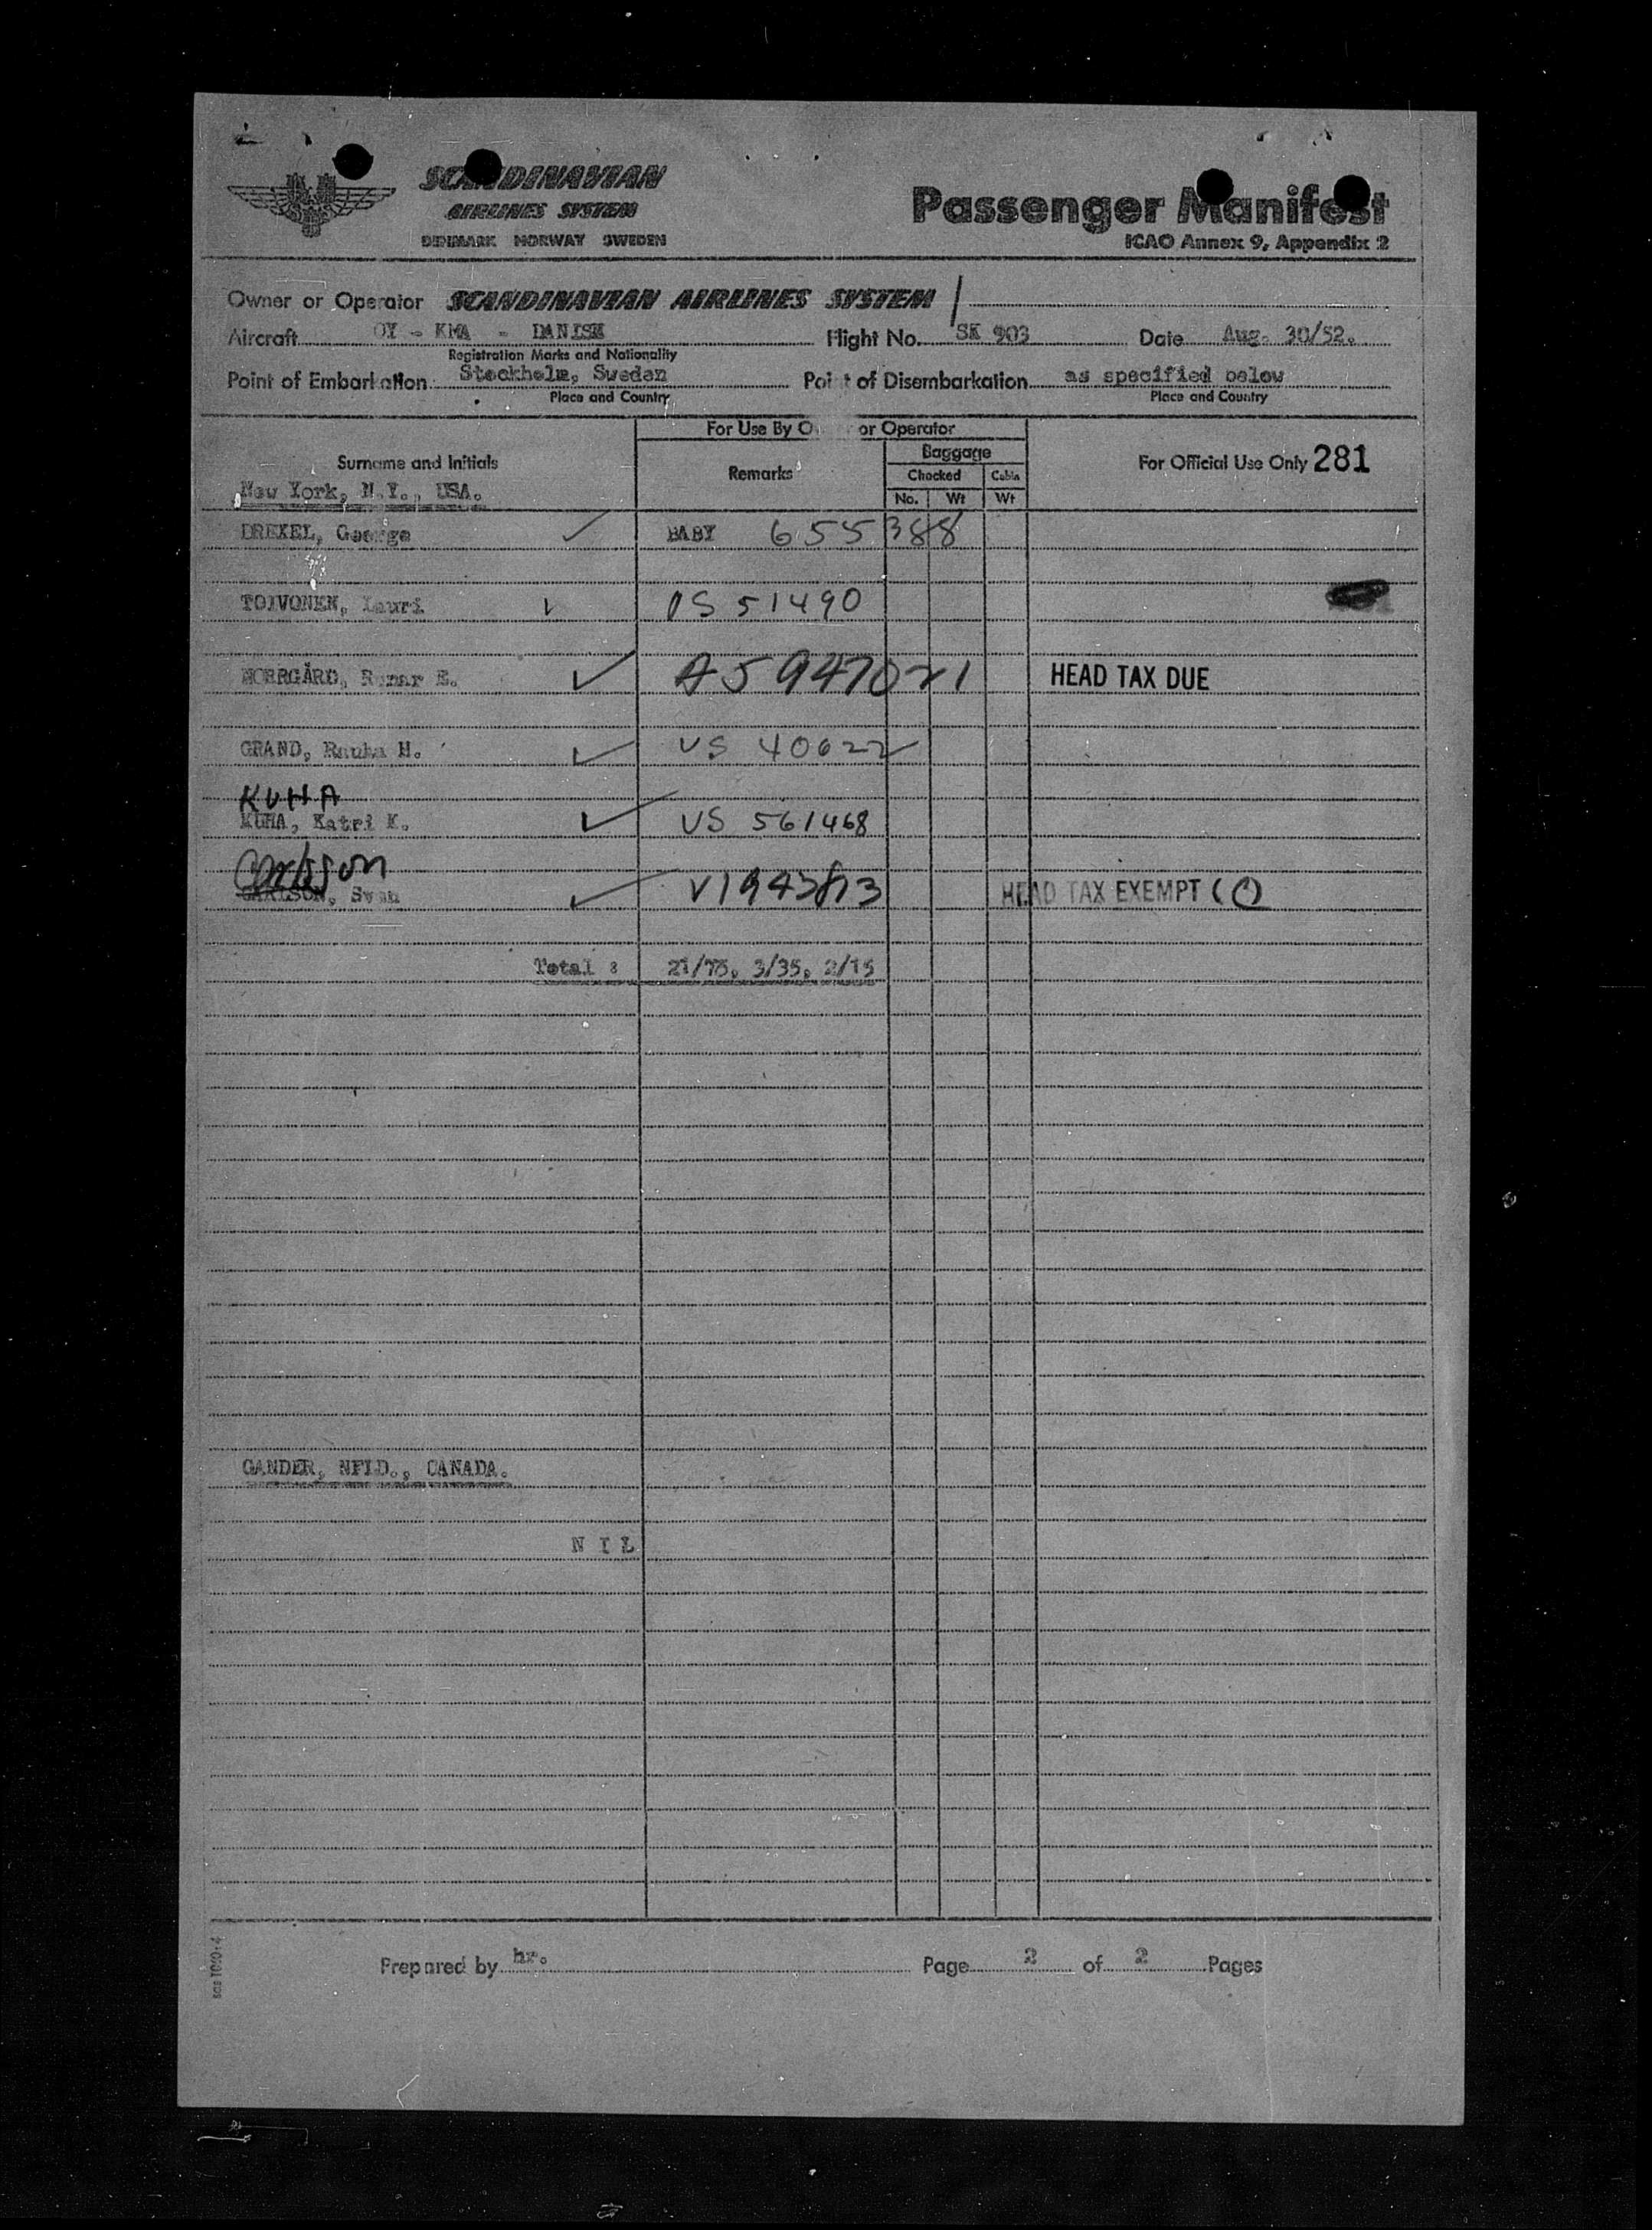 SCANDINAVIAN
AIRLINES SYSTEM
DENMARK NORWAY SWEDEN
Passenger Manifest
ICAO Annex 9, Appendix 2
Owner or Operator SCANDINAVIAN AIRLINES SYSTEM
Aircraft OY - KMA - DANISH Flight No. SK 903 Date Aug. 30/52.
Registration Marks and Nationality
Point of Embarkation Stockholm, Sweden Point of Disembarkation as specified below
Place and Country Place and Country
For Use By O or Operator
Surname and Initials Remarks Baggage For Official Use Only 281
Checked Cabin
New York, N.Y., USA. No. Wt Wt
DREXEL, George BABY 655388
TOIVONEN, Lauri 51490
NORRGÅRD, Runar E. A5947021 HEAD TAX DUE
GRAND, Rauha H. VS 40622
KUHA
MUHA, Katri K. VS 561468
Carlsson
CARLSON, Sven V1943813 HEAD TAX EXEMPT
Total : 21/75, 3/35, 2/15
GANDER, NFLD., CANADA.
N I L
Prepared by hr. Page 2 of 2 Pages